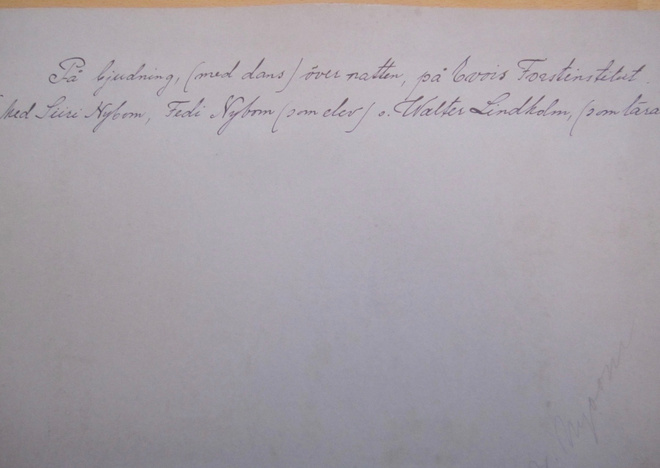 På bjudning, (med dans) över natten, på Evois Forstinstitut.
Med Siiri Nybom, Fedi Nybom (som elev) o. Walter Lindholm, (som lära
Nybom